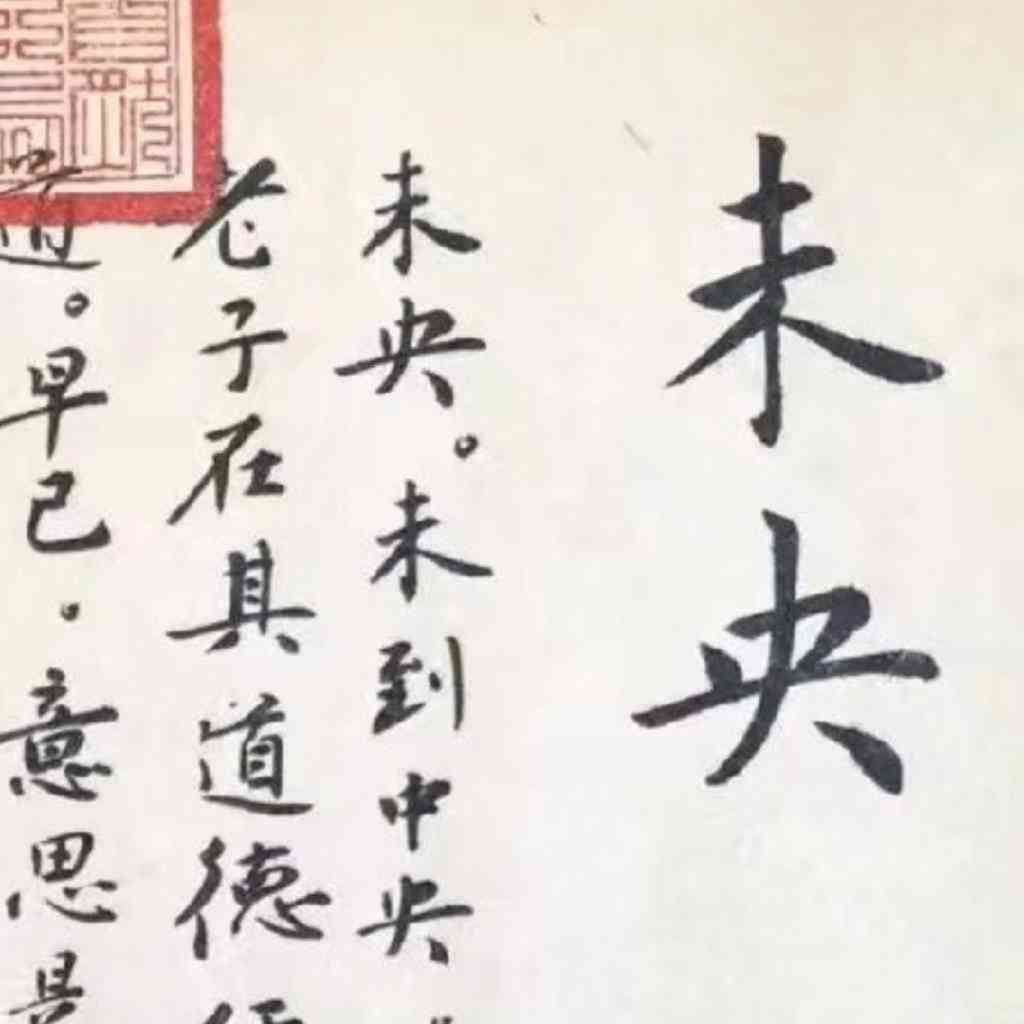 未央
未央。未到中央
老子在其道德
道。早已.意思是